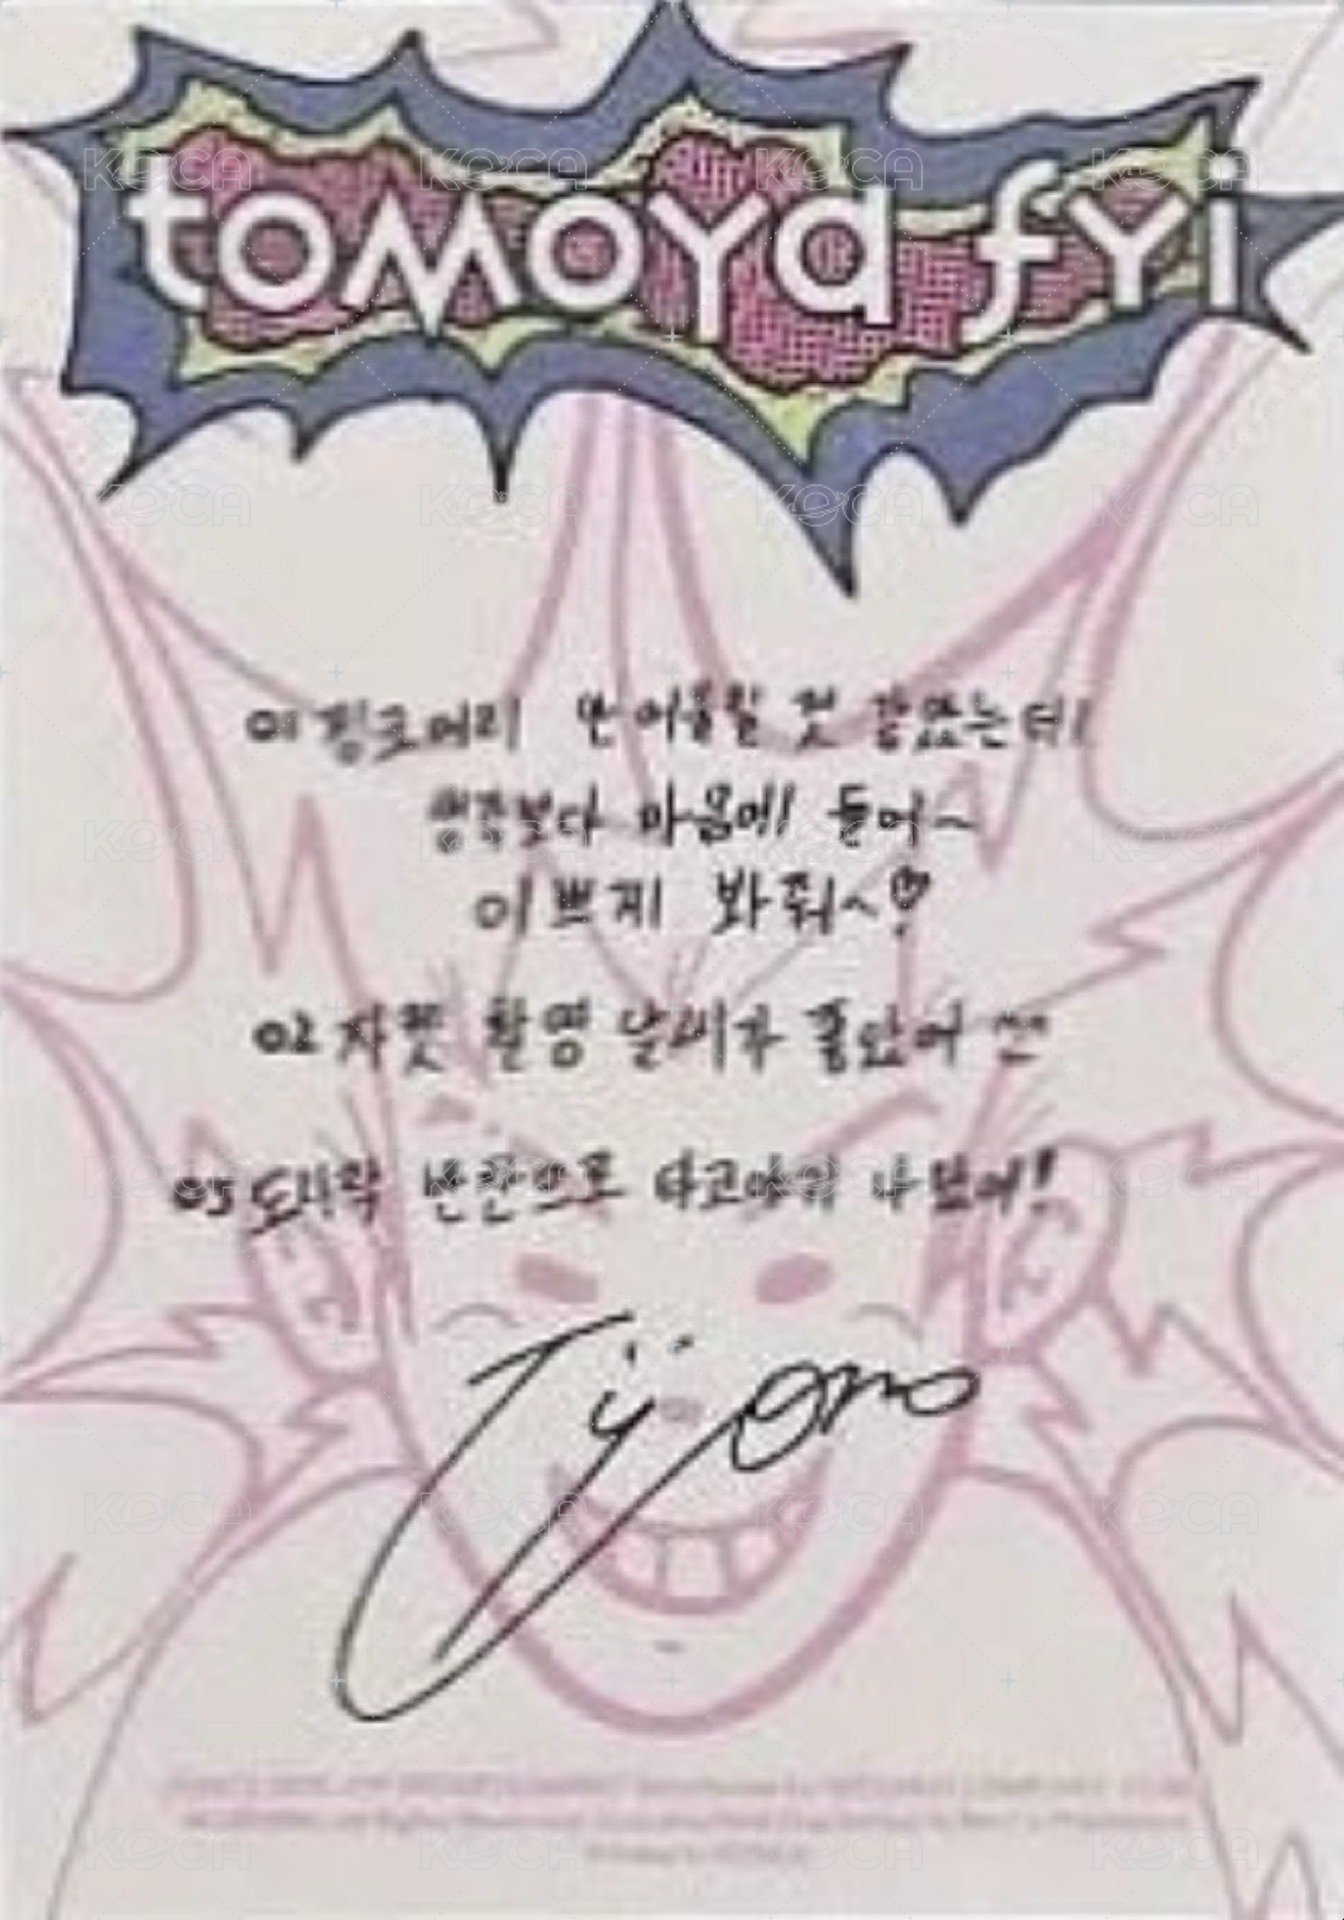 tomoya fyi
01 핑크머리 안 어울릴 것 같았는데
생각보다 마음에 들어~
이쁘게 봐줘~♡
02 자켓 촬영 날씨가 좋았어 ^^
03 도시락 반찬으로 타고야키 나왔어!
KOCA